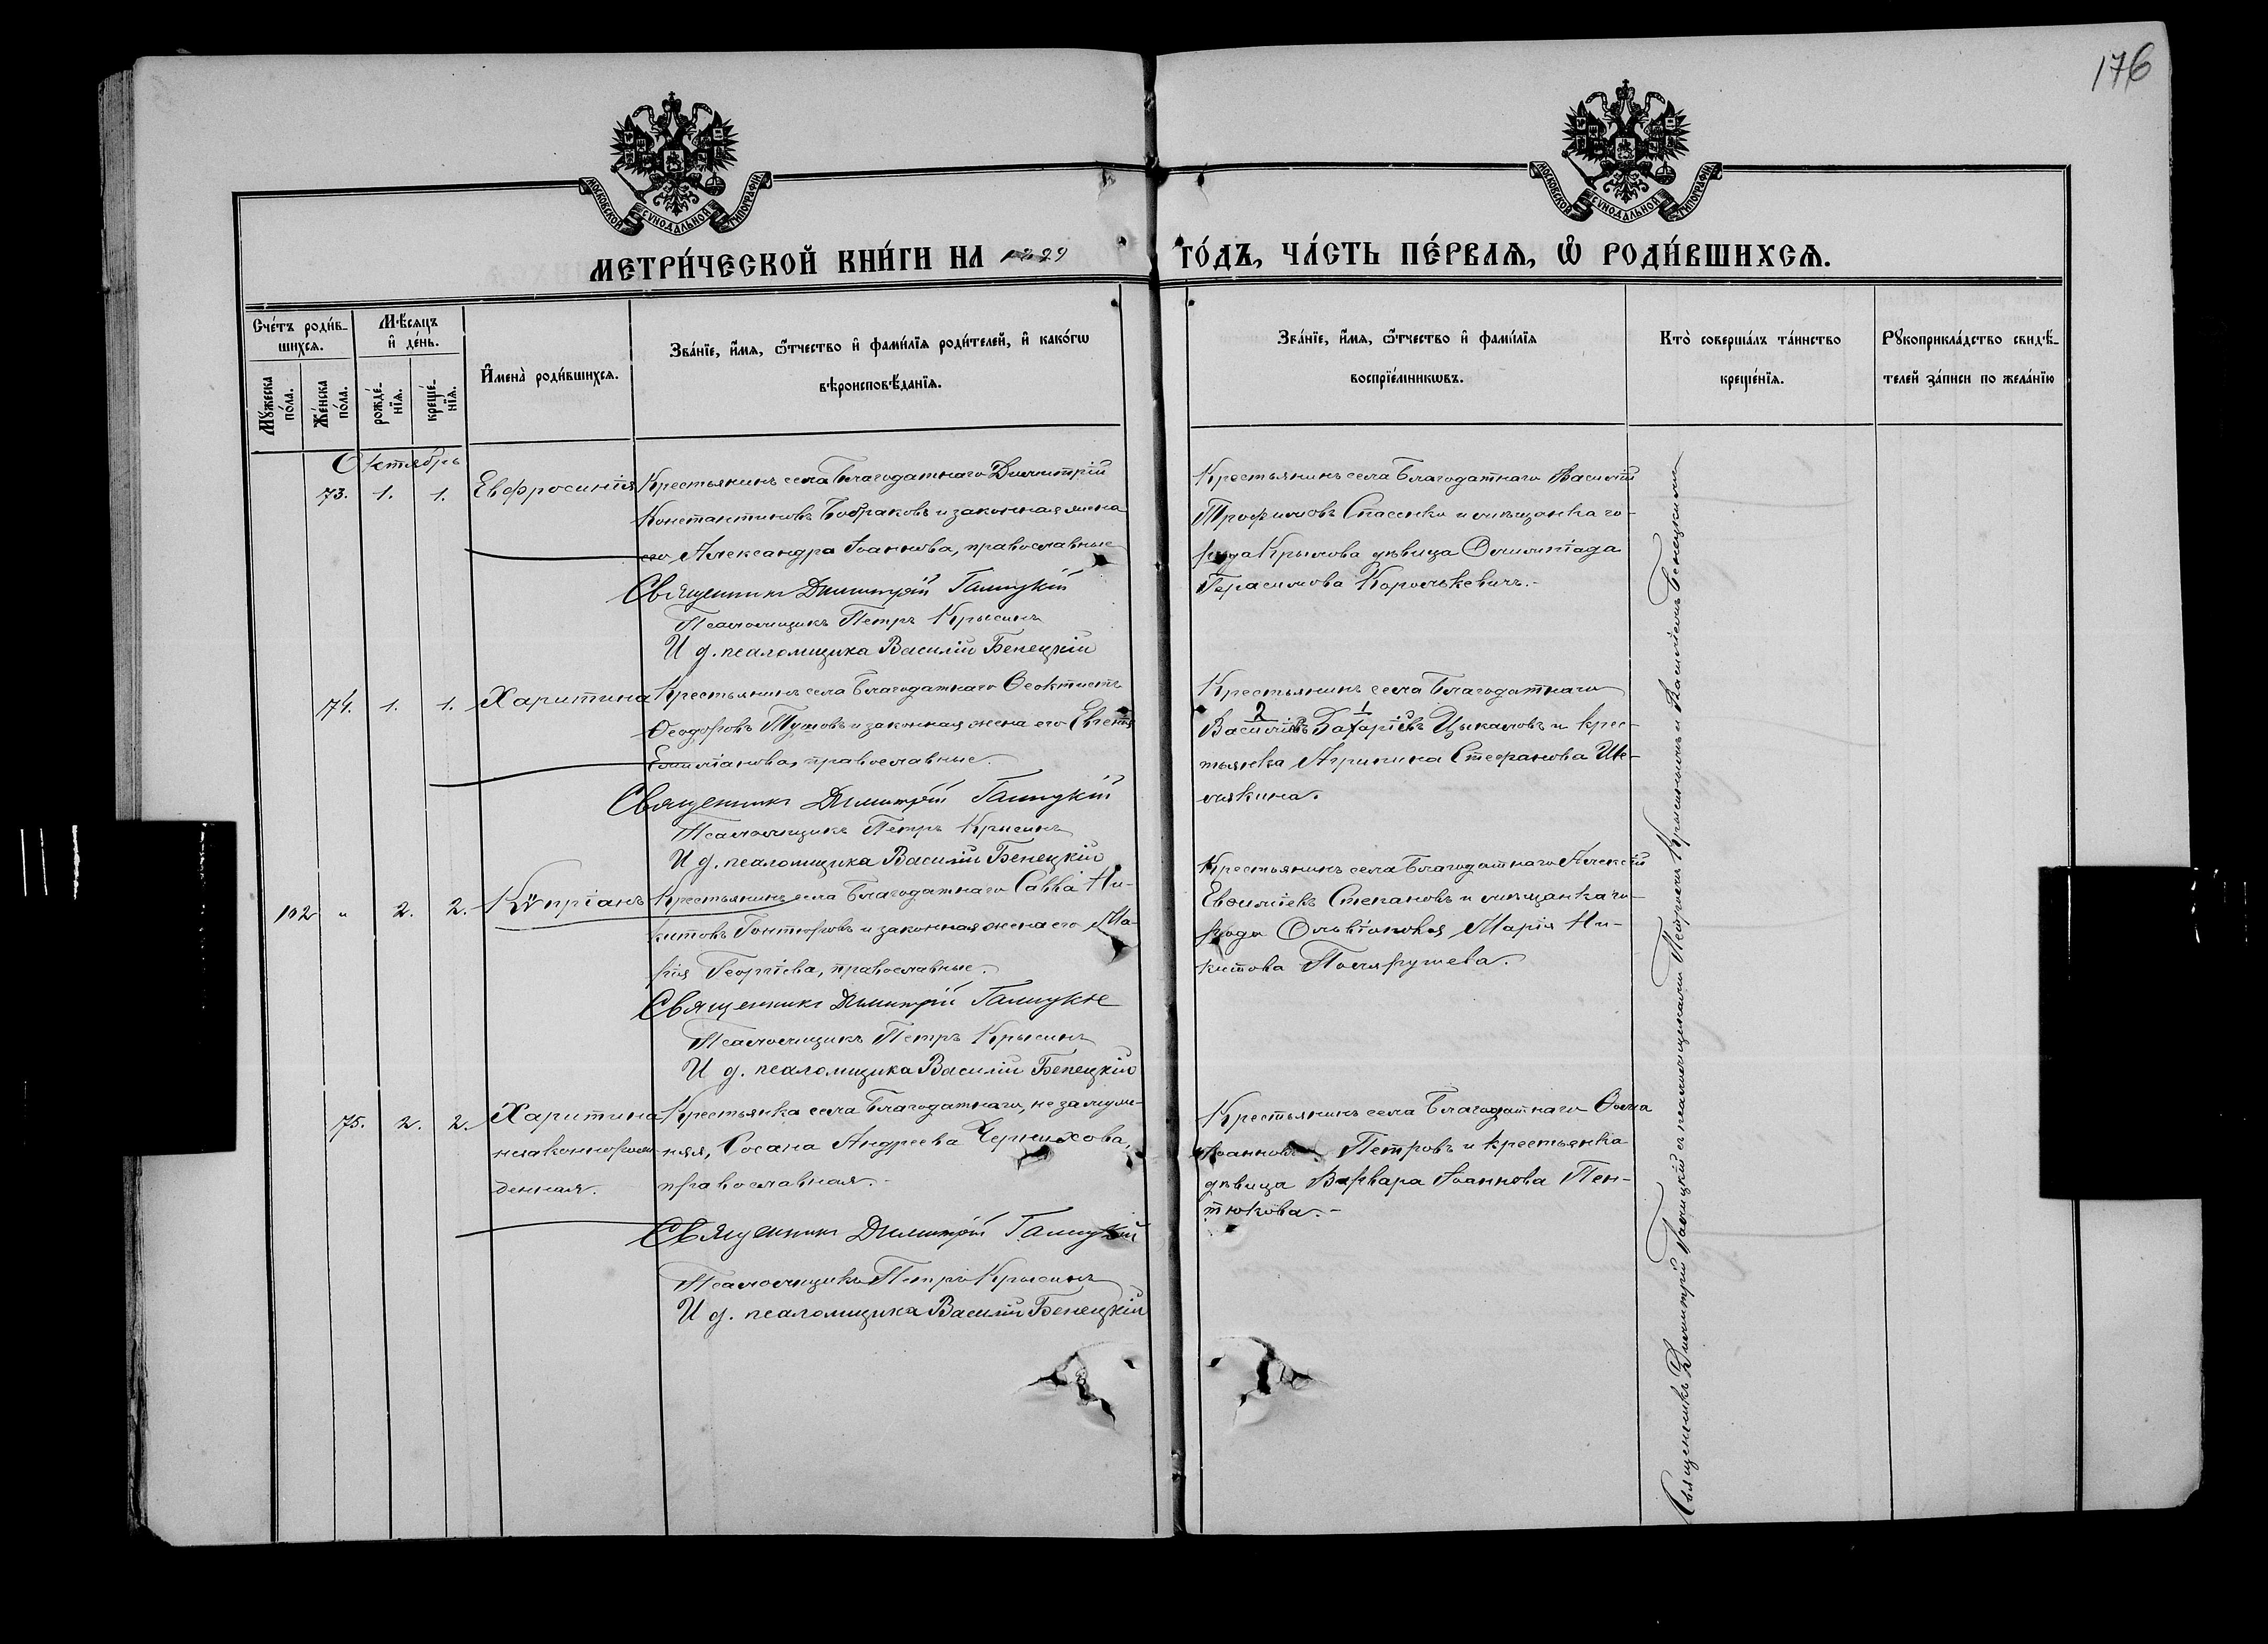 176
МОСКОВСКОЙ СѴНОДАЛЬНОЙ ТИПОГРАФІИ
МОСКОВСКОЙ СѴНОДАЛЬНОЙ ТИПОГРАФІИ
МЕТРИ́ЧЕСКОЙ КНИ́ГИ НА
ГО́ДЪ, ЧА́СТЬ ПЕ́РВАѦ, Ѽ РОДИ́ВШИХСѦ.
Сче́тъ роди́в-
шихсѧ.
Мꙋ́жеска по́ла.
Же́нска по́ла.
Мѣ́сѧцъ и҆ де́нь.
рожде́-нїѧ.
креще́-нїѧ.
И҆мена̀ роди́вшихсѧ.
Зва́нїе, и҆́мѧ, ѻ҆́тчество и҆ фами́лїѧ роди́телей, и҆ како́гѡ
вѣроисповѣ́данїѧ.
Зва́нїе, и҆́мѧ, ѻ҆́тчество и҆ фами́лїѧ
воспрїе́мникѡвъ.
Кто̀ соверша́лъ та́инство
креще́нїѧ.
Рꙋкоприкла́дство свидѣ́-
телей за́писи по жела́нїю
Октябрь
73. 1. 1. Евфросинія
Крестьянинъ села Благодатнаго Димитрій
Константиновъ Бобраковъ и законная жена
его Александра Іоаннова, православные
Священникъ Димитрій Галицкій
Псаломщикъ Петръ Крысинъ
И д. псаломщика Василій Бенецкій
Крестьянинъ села Благодатнаго Василій
Трофимовъ Спасенко и мѣщанка го-
рода Крылова дѣвица Олимпіада
Герасимова Королькевичъ.-
74. 1. 1. Харитина
Крестьянинъ села Благодатнаго Ѳеоктистъ
Ѳеодоровъ Тутовъ и законная жена его
Емиліанова, православные.
Священникъ Димитрій Галицкій
Псаломщикъ Петръ Крысинъ
И д. псаломщика Василій Бенецкій
Крестьянинъ села Благодатнаго
2 1
Захаріевъ Цыкаловъ и крес-
тьянка Агрипина Стефанова Ше-
мякина.
102 " 2. 2. Кѷпріанъ
Крестьянинъ села Благодатнаго Савва Ни-
китовъ Гонтюровъ и законная жена его Ма-
рія Георгіева, православные.
Священникъ Димитрій Галицкій
Псаломщикъ Петръ Крысинъ
И д. псаломщика Василій Бенецкій
Крестьянинъ села Благодатнаго Алексій
Евѳиміевъ Степановъ и мѣщанка го-
рода Марія Ни-
китова
75. 2. 2. Харитина
незаконнорож-
денная.
Крестьянка села Благодатнаго, не замуж-
няя, Росана Андреева
православная.-
Священникъ Димитрій Галицкій
Псаломщикъ Петръ Крысинъ
И д. псаломщика Василій Бенецкій
Крестьянинъ села Благодатнаго Ѳома
Іоанновъ Петровъ и крестьянка
дѣвица Варвара Іоаннова Пен-
тюхова.-
Священникъ Димитрій Галицкій съ псаломщиками Петромъ Крысинымъ и Василіемъ Бенецкимъ